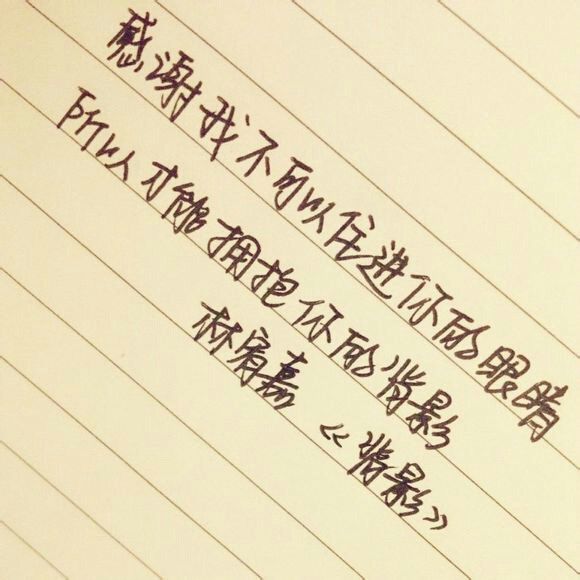 感谢我不可以住进你的眼睛
所以才能拥抱你的背影
林宥嘉 《背影》